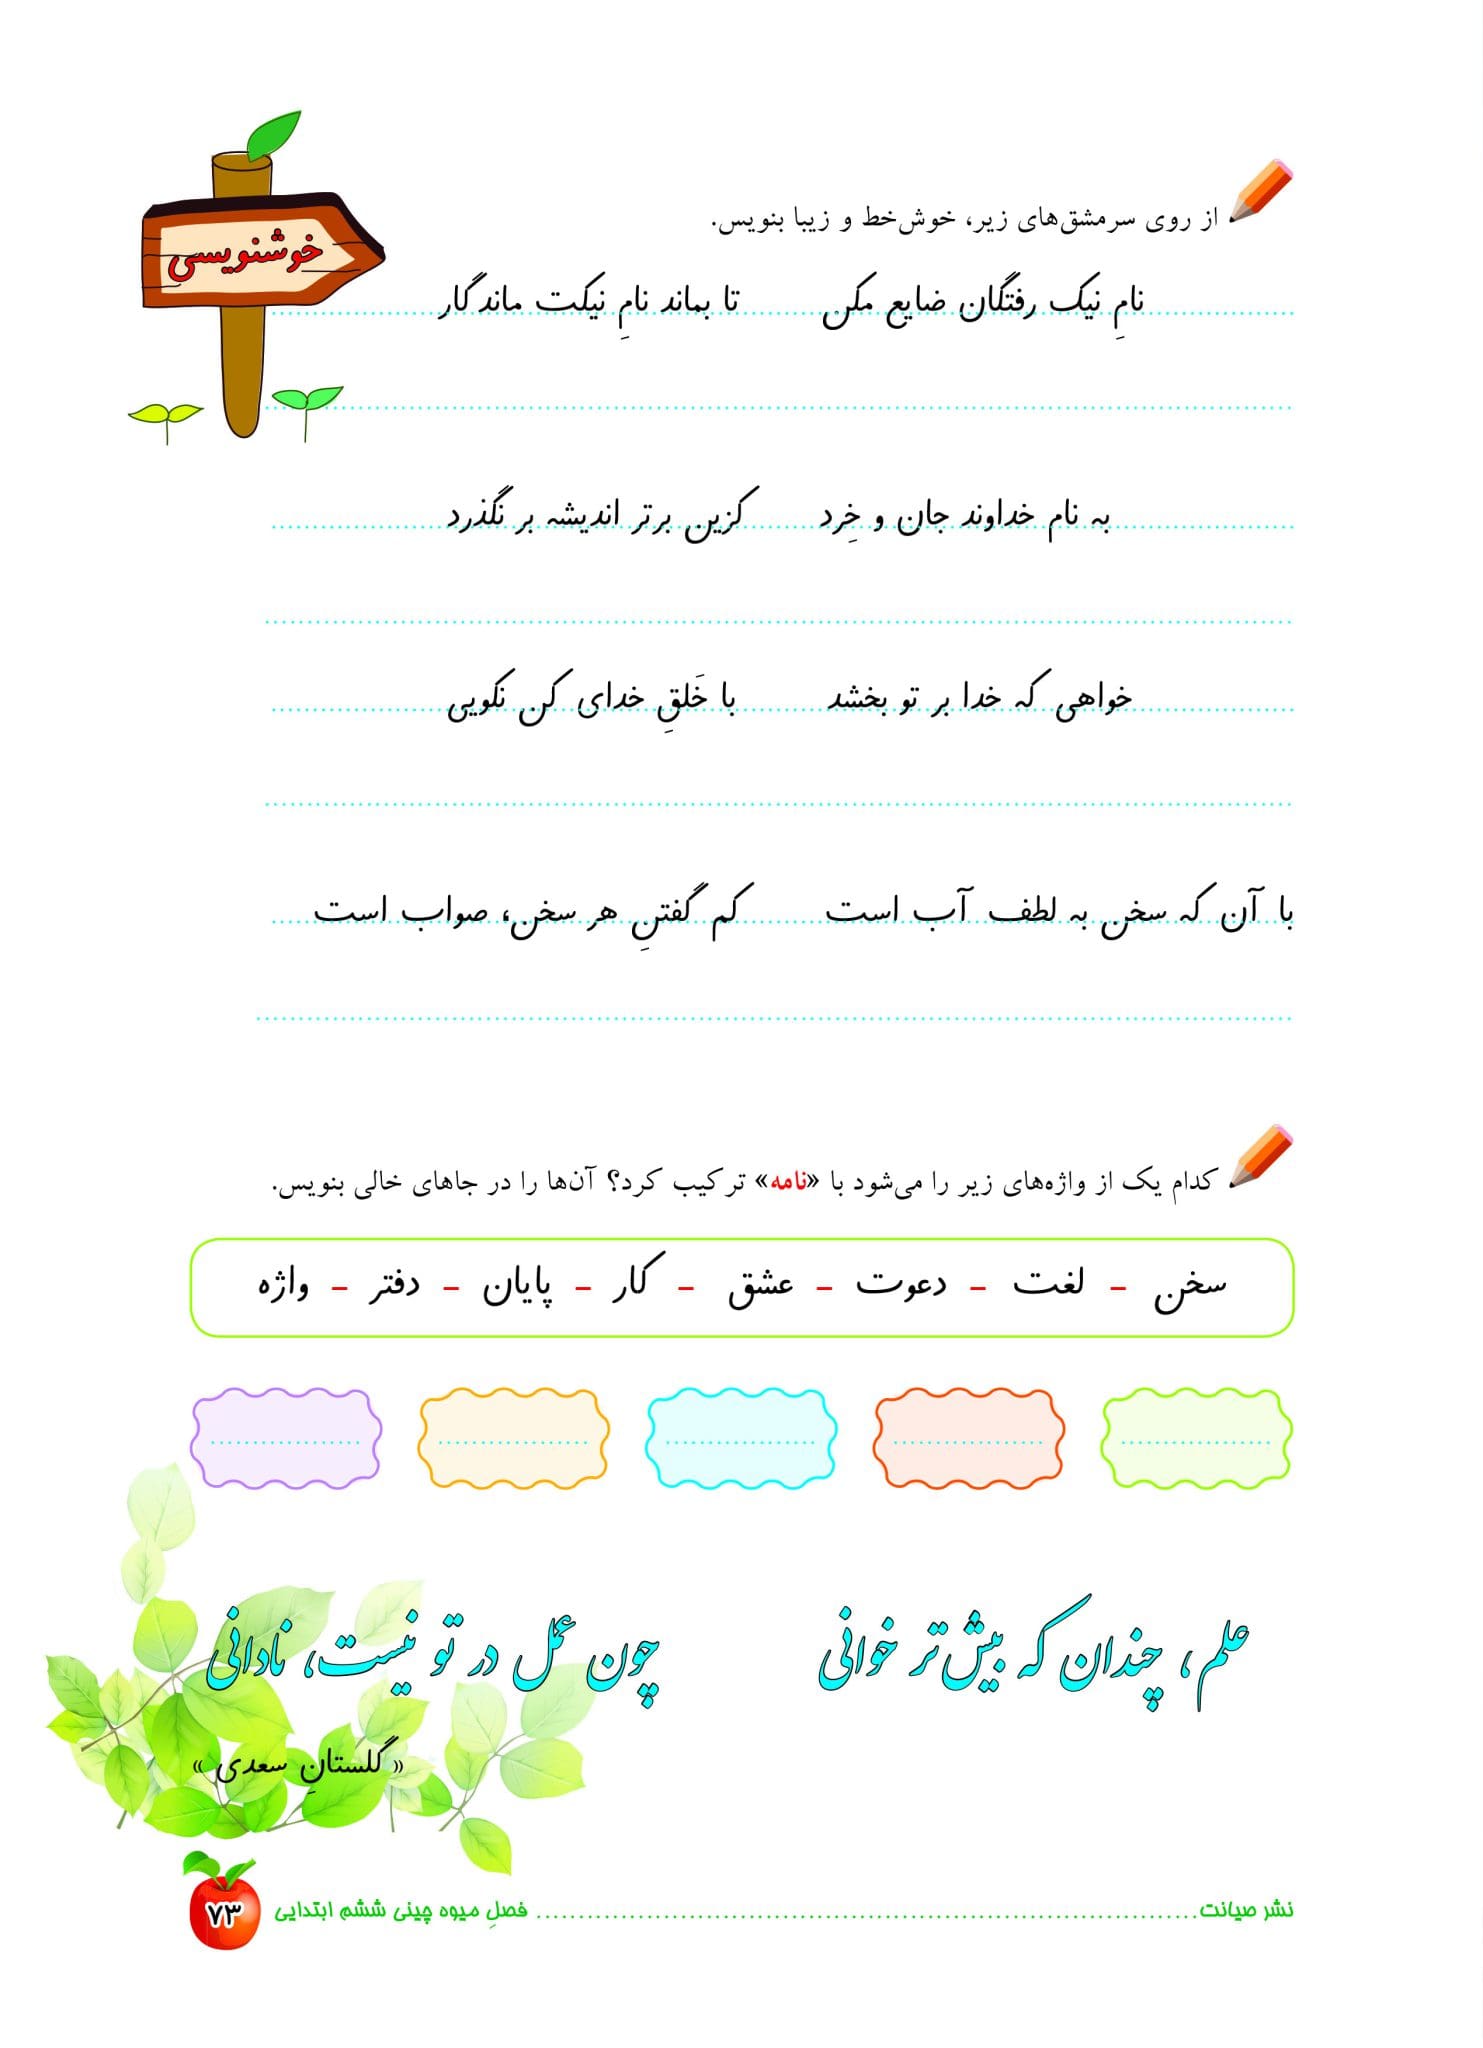 خوشنویسی
از روی سرمشق‌های زیر، خوش‌خط و زیبا بنویس.
نامِ نیک رفتگان ضایع مکن تا بماند نامِ نیکت ماندگار
به نام خداوند جان و خِرد کزین برتر اندیشه بر نگذرد
خواهی که خدا بر تو بخشد با خَلقِ خدای کن نکویی
با آن که سخن به لطف آب است کم گفتنِ هر سخن، صواب است
کدام یک از واژه‌های زیر را می‌شود با «نامه» ترکیب کرد؟ آن‌ها را در جاهای خالی بنویس.
سخن - لغت - دعوت - عشق - کار - پایان - دفتر - واژه
علم، چندان که بیش‌تر خوانی چون عمل در تو نیست، نادانی
«گلستانِ سعدی»
نشر صیانت ........ فصلِ میوه چینی ششم ابتدایی ۷۳